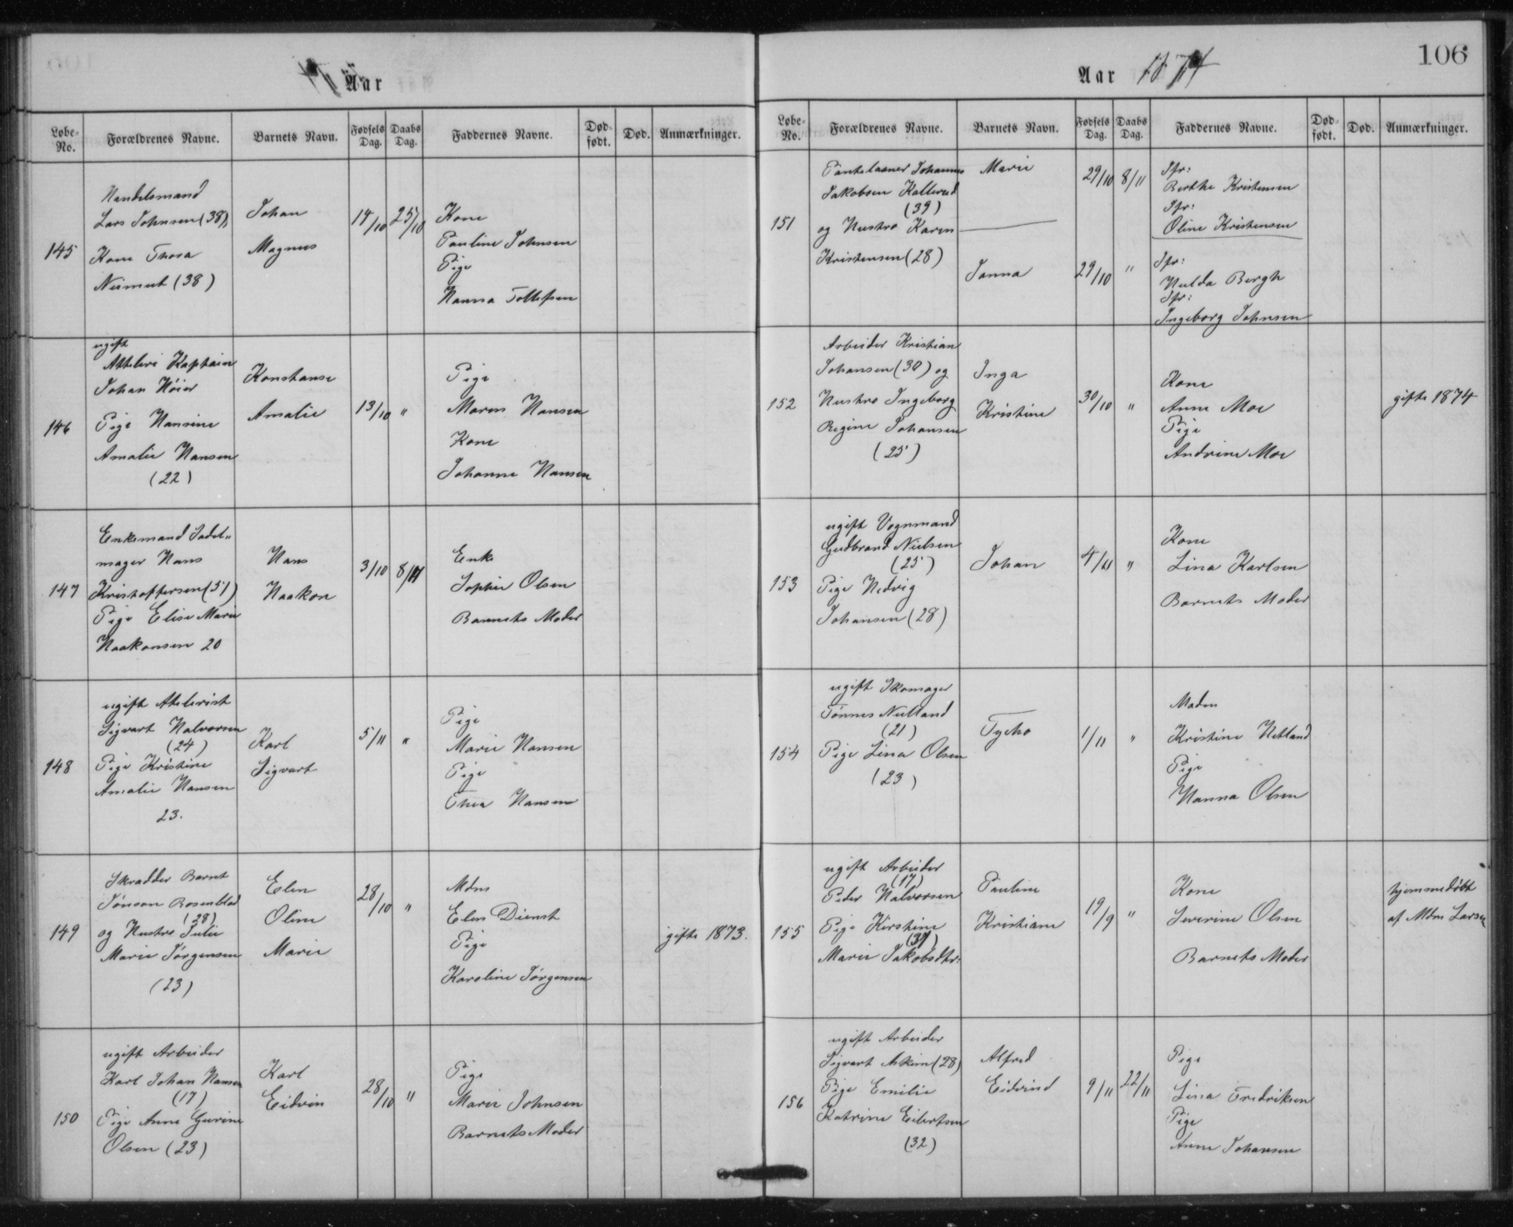 Aar
Løbe-No. Forældrenes Navne. Barnets Navn. Fødsels Dag. Daabs Dag. Faddernes Navne. Død-født. Død. Anmærkninger.
145
Handelsmand
Lars Johnsen (38)
Kone Thora
(38)
Johan
Magnus
14/10 25/10
Kone
Pauline Johnsen
Pige
Hanna Tollefsen
146
ugift
Kaptain
Johan Höier
Pige Hansine
Amalie Hansen
(22)
Konstanse
Amalie
13/10 "
Pige
Maren Hansen
Kone
Johanne Hansen
147
Enkemand Sadel-
mager Hans
Kristoffersen (51)
Pige Elise Marie
Haakonsen 20
Hans
Haakon
3/10 8/11
Enke
Sophie Olsen
Barnets Moder
148
ugift
Sigvart Halvorsen
(24)
Pige Kristine
Amalie Hansen
23.
Karl
Sigvart
5/11 "
Pige
Marie Hansen
Pige
Thea Hansen
149
Skrædder Bernt
Tönson Rosenblad
(28)
og Hustro Julie
Marie Jörgensen
(23)
Elen
Oline
Marie
28/10 "
Mdm
Elen Dienst
Pige
Karoline Jörgensen
gifte 1873.
150
ugift Arbeider
Karl Johan Hansen
(17)
Pige Anne Gurine
Olsen (23)
Karl
Eidvin
28/10 "
Pige
Marie Johnsen
Barnets Moder
106
Aar 1874
Løbe-No. Forældrenes Navne. Barnets Navn. Fødsels Dag. Daabs Dag. Faddernes Navne. Død-født. Død. Anmærkninger.
151
Johannes
Jakobsen Kallerud
(39)
og Hustro Karen
Kristensen (28)
Marie
29/10 8/11
Fr:
Berthe Kristensen
Fr:
Oline Kristensen
Janna
29/10 "
Fr:
Hulda Bergh
Fr:
Ingeborg Johnsen
152
Arbeider Kristian
Johansen (30) og
Hustro Ingeborg
Regine Johansen
(25)
Inga
Kristine
30/10 "
Kone
Anne Moe
Pige
Andrine Moe
gifte 1874
153
ugift Vognmand
Gudbrand Nielsen
(25)
Pige Hedvig
Johansen (28)
Johan
4/11 "
Kone
Lina Karlsen
Barnets Moder
154
ugift Skomager
Tönnes Netland
(21)
Pige Lina Olsen
(23)
Tycho
1/11 "
Madm
Kristine Netland
Pige
Hanna Olsen
155
ugift Arbeider
(17)
Peder Halvorsen
Pige Kirstine
(31)
Marie Jakobsdtr.
Pauline
Kristiane
19/9 "
Kone
Severine Olsen
Barnets Moder
hjemmedöbt
af Mdm Larsen
156
ugift Arbeider
Sigvart Askim (28)
Pige Emilie
Katrine Eilertsen
(32)
Alfred
Eidvind
9/11 22/11
Pige
Lina Fredriksen
Pige
Anne Johansen